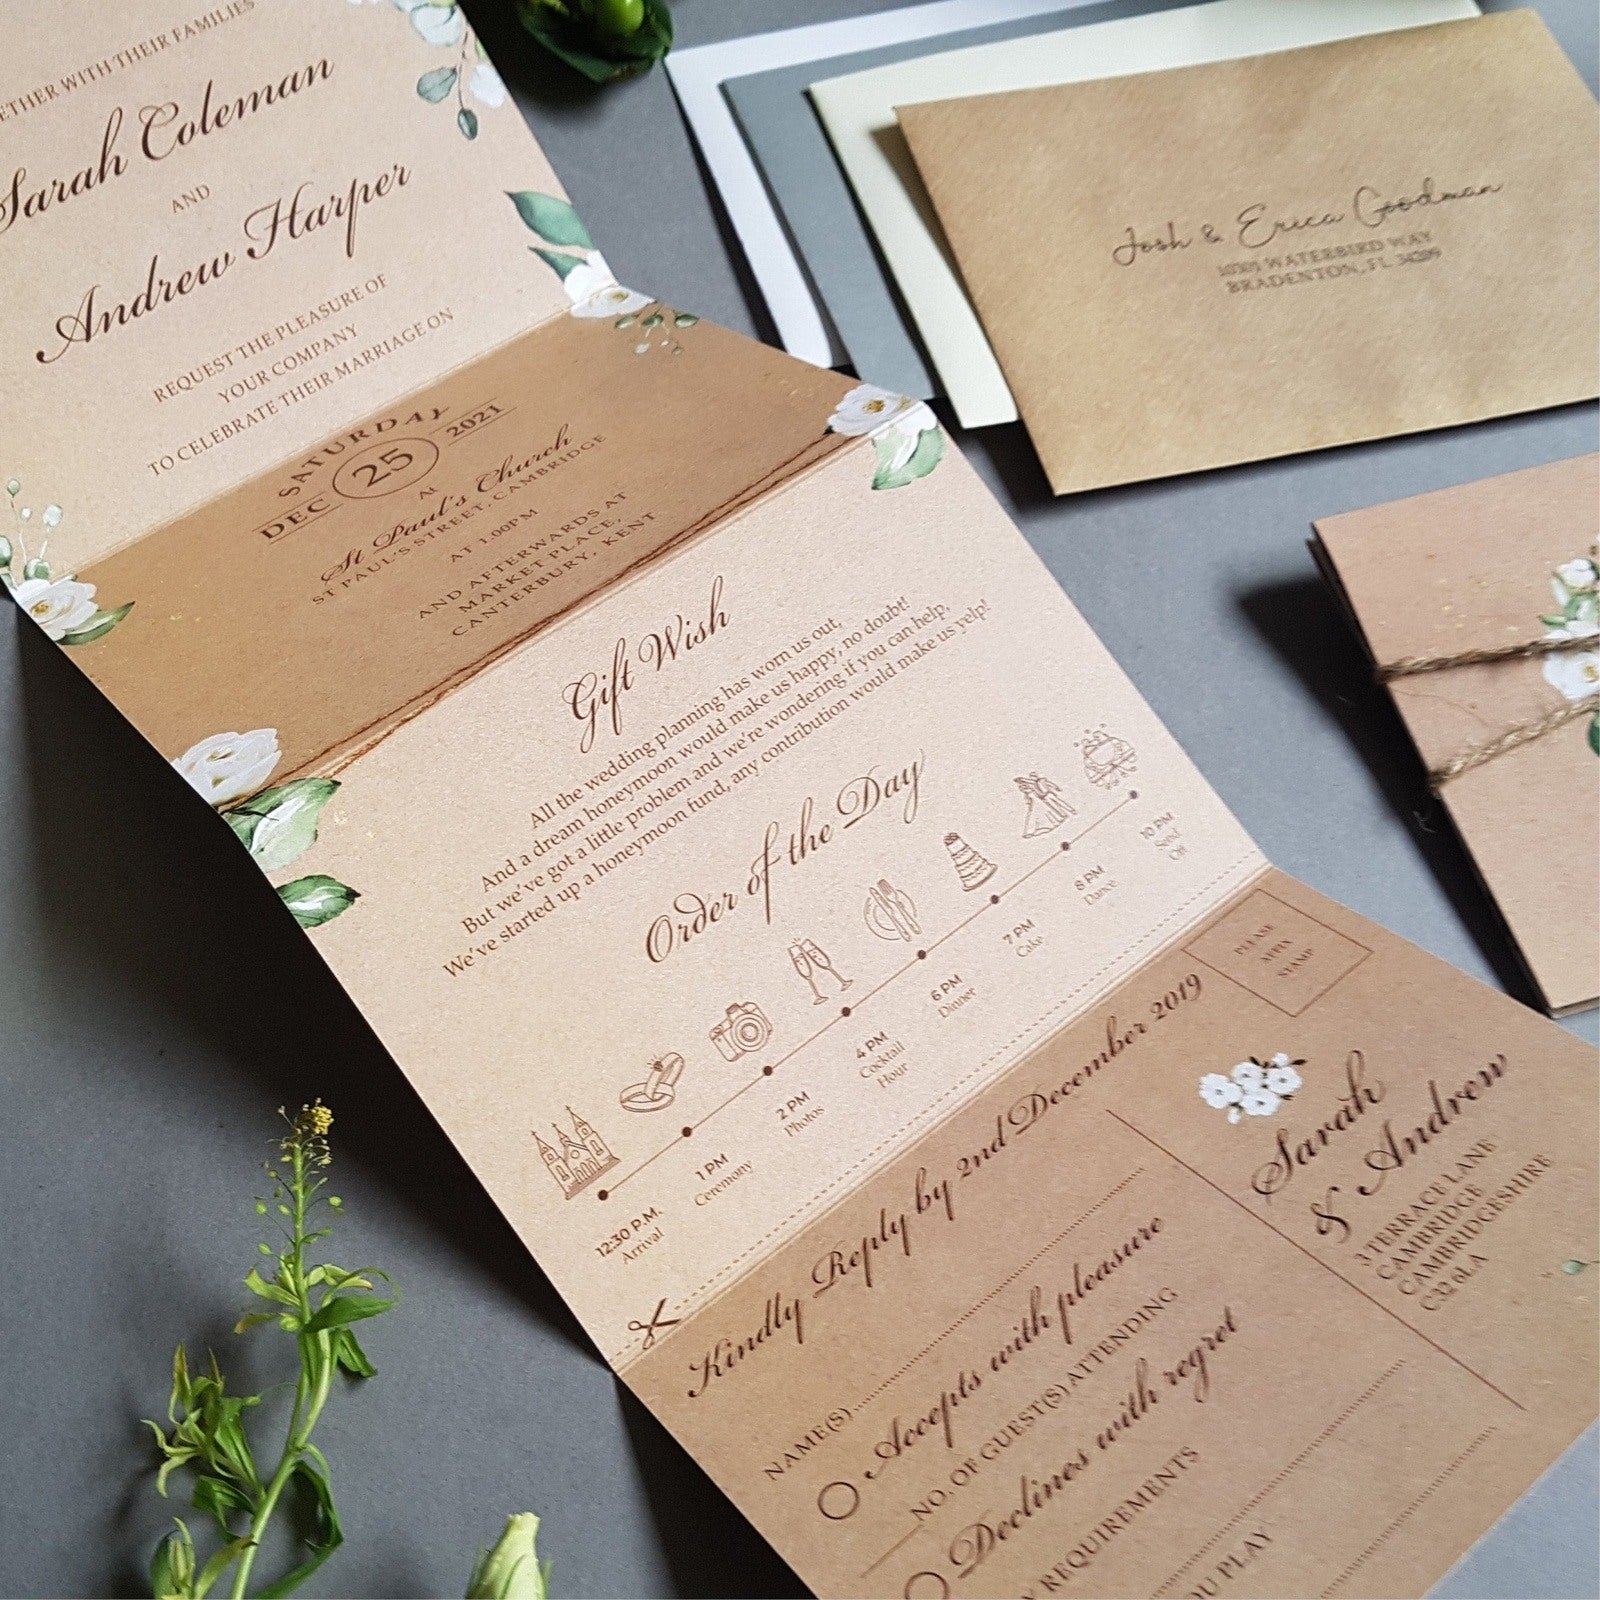 WITH THEIR FAMILIES
Sarah Coleman
AND
Andrew Harper
REQUEST THE PLEASURE OF
YOUR COMPANY
TO CELEBRATE THEIR MARRIAGE ON
SATURDAY
DEC 25 2021
At
St Paul's Church
ST PAUL'S STREET, CAMBRIDGE
AT 1.00PM
AND AFTERWARDS AT
MARKET PLACE,
CANTERBURY, KENT
Gift Wish
All the wedding planning has worn us out,
And a dream honeymoon would make us happy, no doubt!
But we've got a little problem and we're wondering if you can help,
We've started up a honeymoon fund, any contribution would make us yelp!
Order of the Day
12:30 P.M.
Arrival
1 PM
Ceremony
2 PM
Photos
4 PM
Cocktail
Hour
6 PM
Dinner
7 PM
Cake
8 PM
Dance
10 PM
Send
Off
Kindly Reply by 2nd December 2019
NAME(S)
Accepts with pleasure
NO. OF GUEST(S) ATTENDING
Declines with regret
REQUIREMENTS
PLAY
PLEASE
AFFIX
STAMP
Sarah
& Andrew
3 TERRACE LANE
CAMBRIDGE
CAMBRIDGESHIRE
C32 6LA
Josh & Erica Goodman
WATERBIRD WAY
BRADENTON, FL 34209